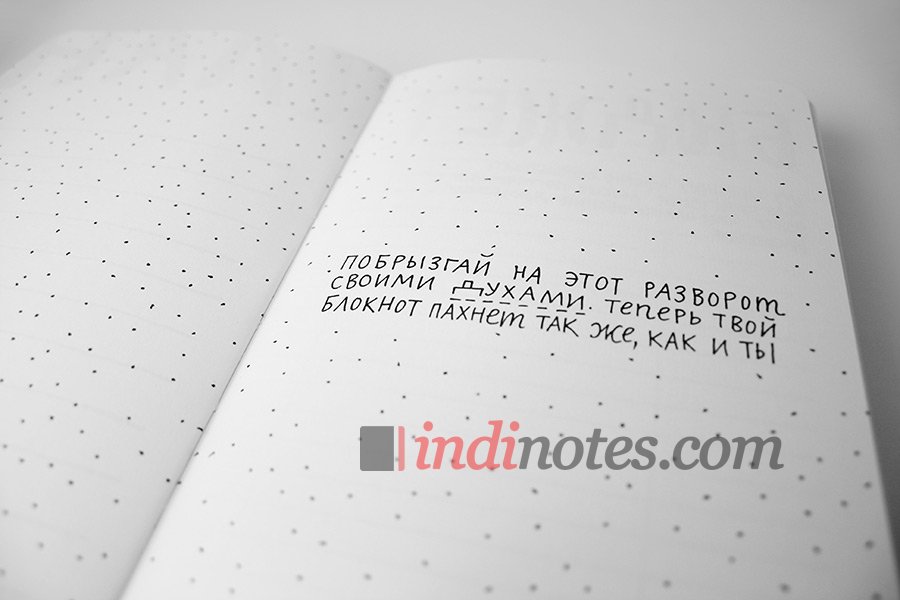 ПОБРЫЗГАЙ НА ЭТОТ РАЗВОРОТ
СВОИМИ ДУХАМИ. ТЕПЕРЬ ТВОЙ
БЛОКНОТ ПАХНЕТ ТАК ЖЕ, КАК И ТЫ
indinotes.com